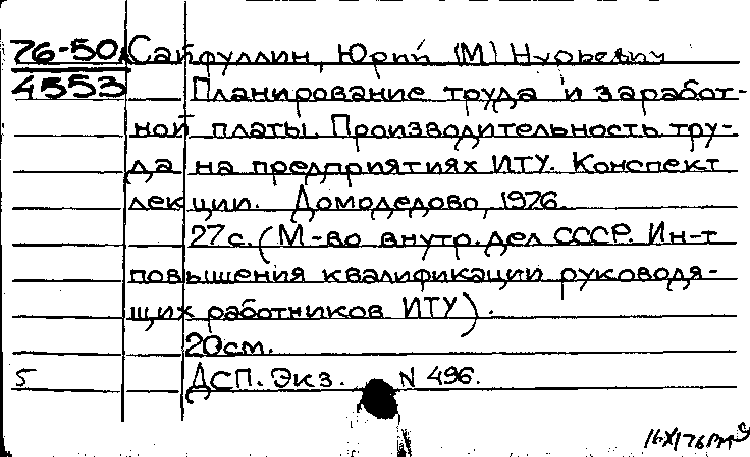 76-50 Сайфуллин, Юрий (М) Нурьевич
4553 Планирование труда и заработ-
ной платы. Производительность тру-
да на предприятиях ИТУ. Конспект
лекции. Домодедово, 1976.
27с. (М-во внутр. дел СССР. Ин-т
повышения квалификации руководя-
щих работников ИТУ).
20см.
5 ДСП. Экз. N 496.